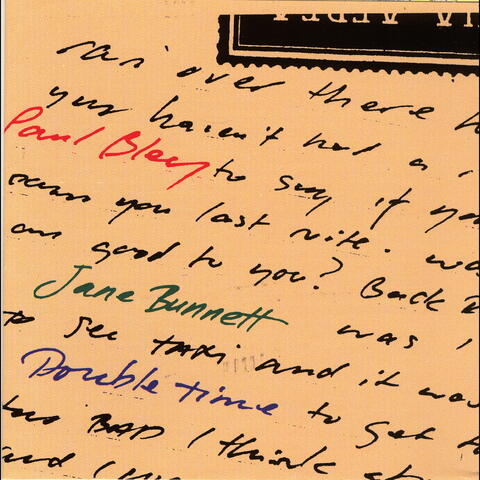 over there
you haven't had a
Paul Bley to say if you
you last nite. was
good to you? Back
Jane Bunnett was I
to see taxi and it was
Double time to get
BAD I think
and I